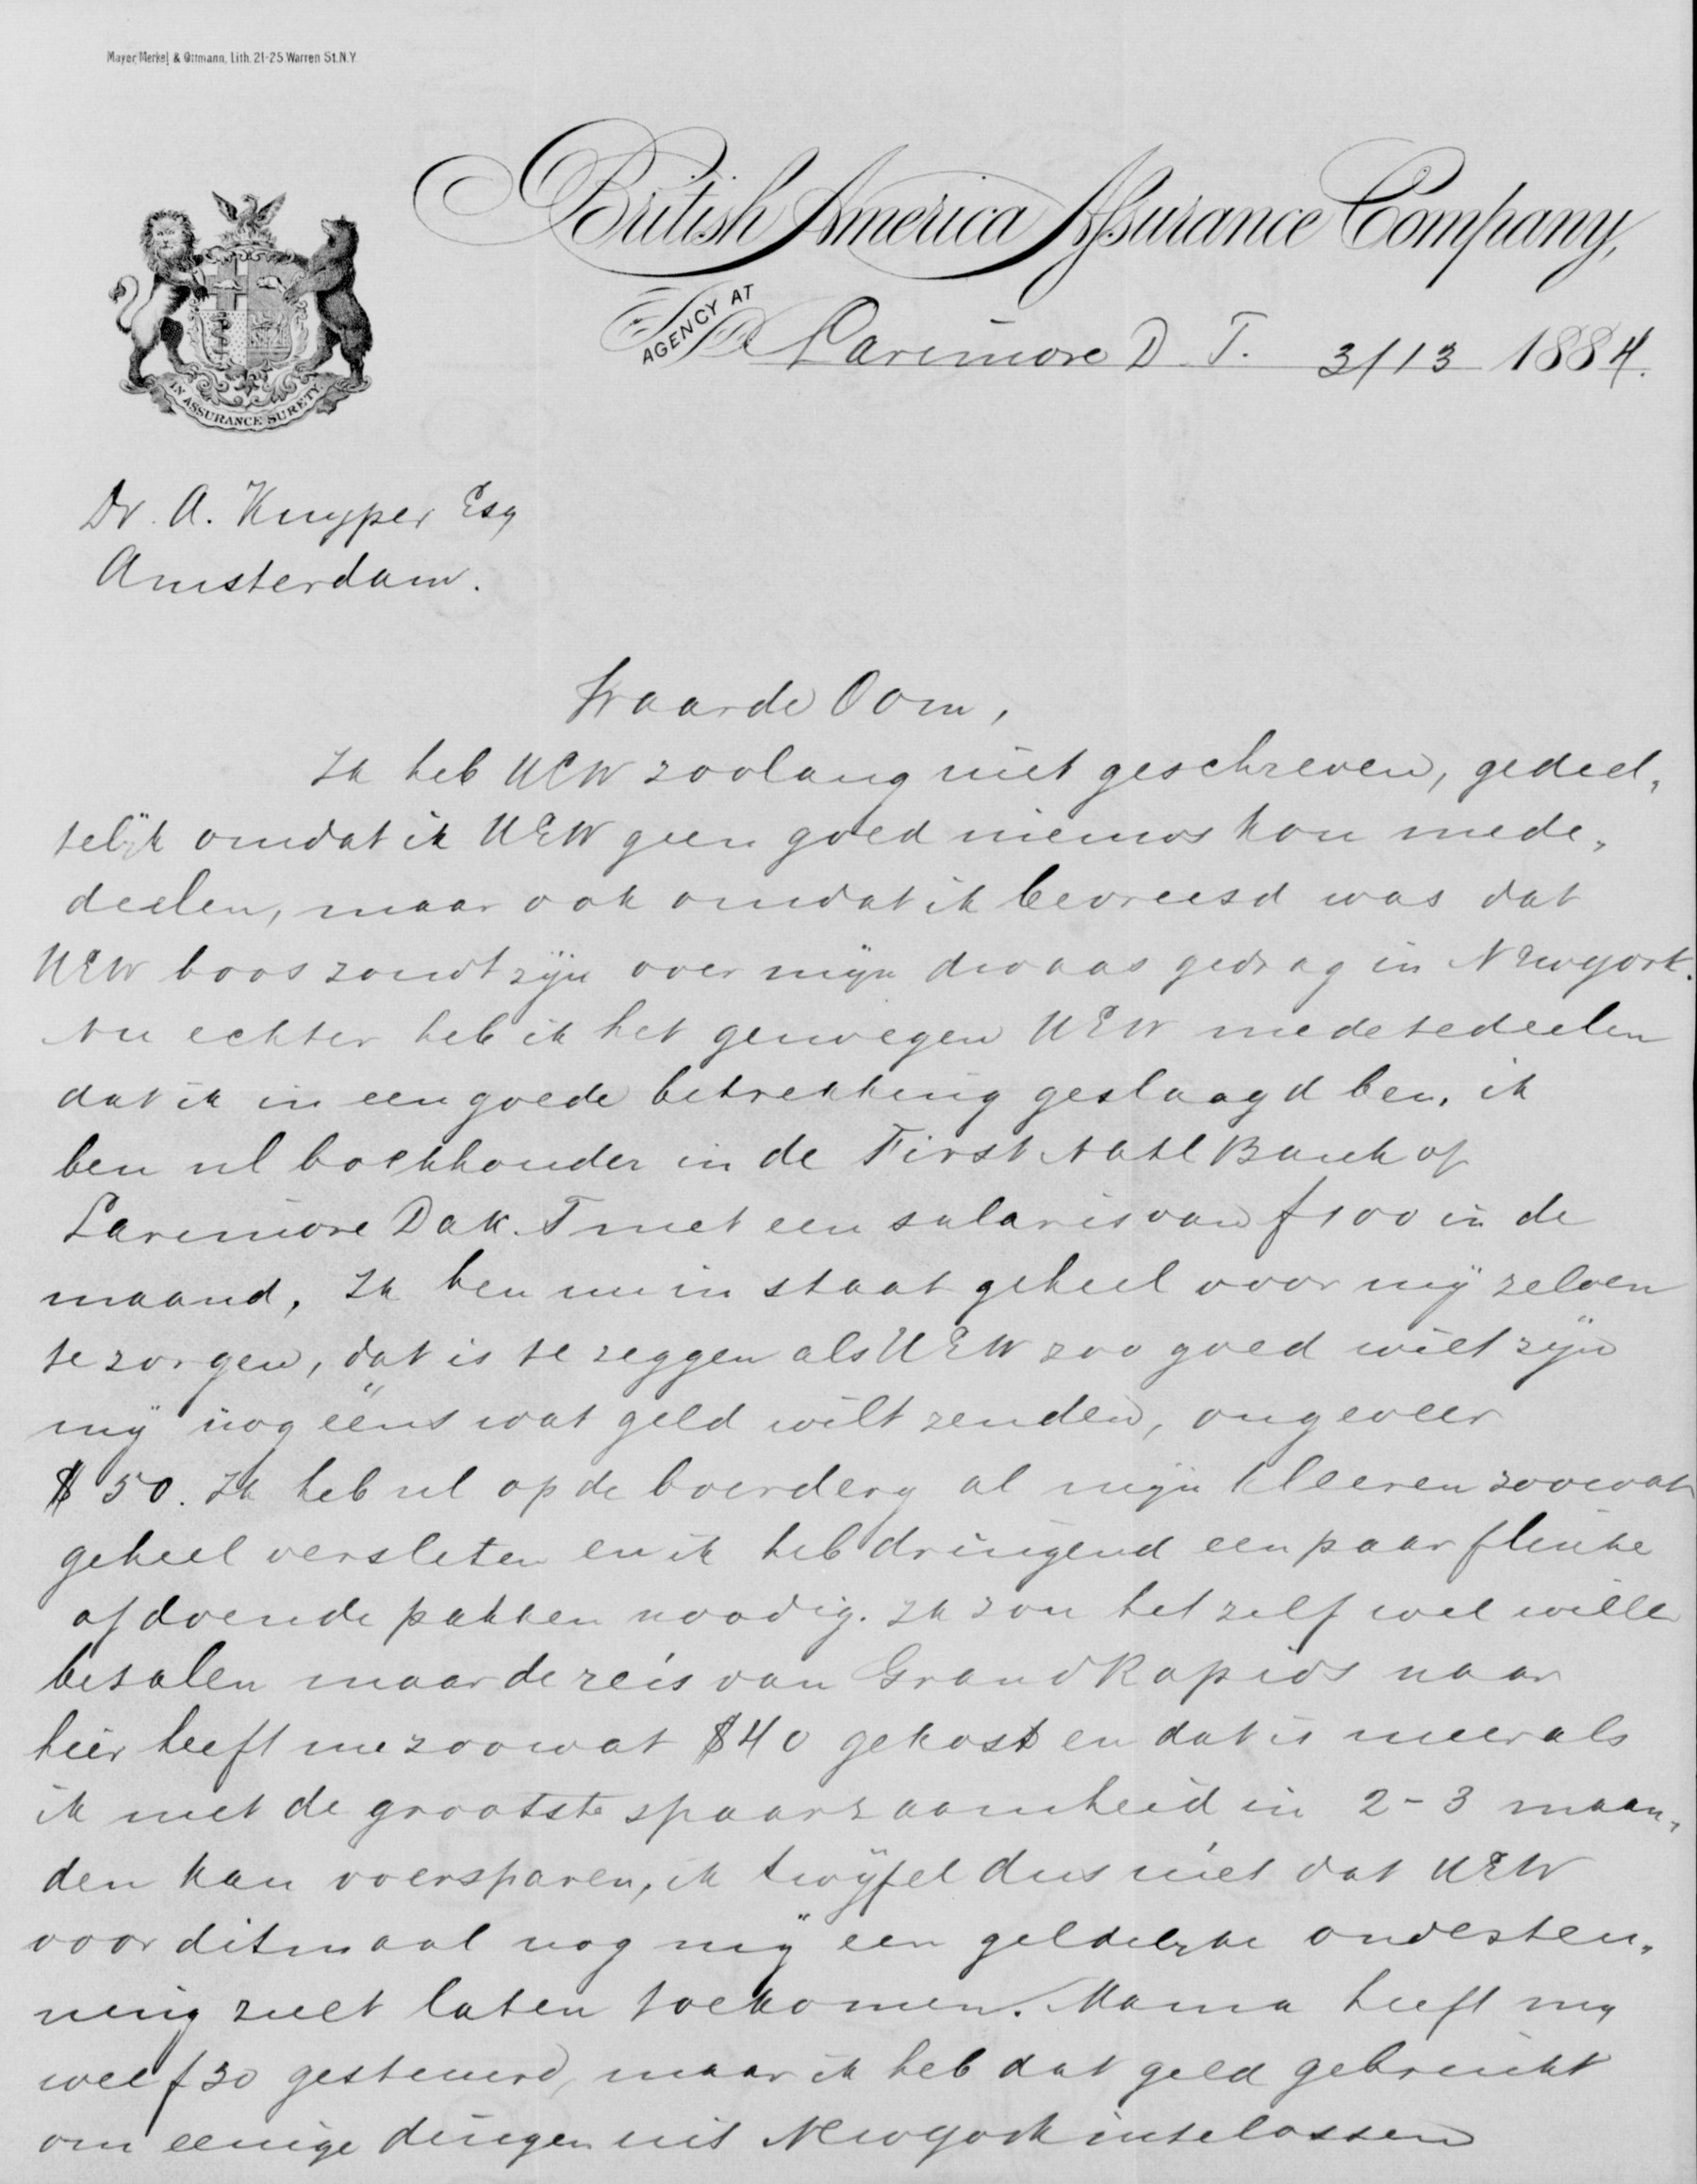 Mayer, Merkel & Ottmann, Lith. 21-25 Warren St. N.Y.
British America Assurance Company,
AGENCY AT Larimore D. T. 3/13 1884.
IN ASSURANCE SURETY.
Dr. A. Kuyper Esq
Amsterdam.
Waarde Oom,
Ik heb UEW zoolang niet geschreven, gedeel„
telijk omdat ik UEW geen goed nieuws kon mede„
deelen, maar ook omdat ik bevreesd was dat
UEW boos zoudt zijn over mijn dwaas gedrag in Newyork.
Nu echter heb ik het genoegen UEW medetedeelen
dat ik in een goede betrekking geslaagd ben, ik
ben nl boekhouder in de First Natl Bank of
Larimore Dak. T met een salaris van f100 in de
maand, Ik ben nu in staat geheel voor mij zelven
te zorgen, dat is te zeggen als UEW zoo goed wilt zijn
mij nog ééns wat geld wilt zenden, ongeveer
$50. Ik heb nl op de boerdery al mijn kleeren zoowat
geheel versleten en ik heb dringend een paar flinke
afdoende pakken noodig. Ik zou het zelf wel wille
betalen maar de reis van Grand Rapids naar
hier heeft me zoowat $40 gekost en dat is meer als
ik met de grootste spaarzaamheid in 2-3 maan„
den kan oversparen, ik twijfel dus niet dat UEW
voor ditmaal nog mij een geldelyke ondersteu„
ning zult laten toekomen. Mama heeft my
wel f30 gestuurd, maar ik heb dat geld gebruikt
om eenige dingen uit Newyork intelossen